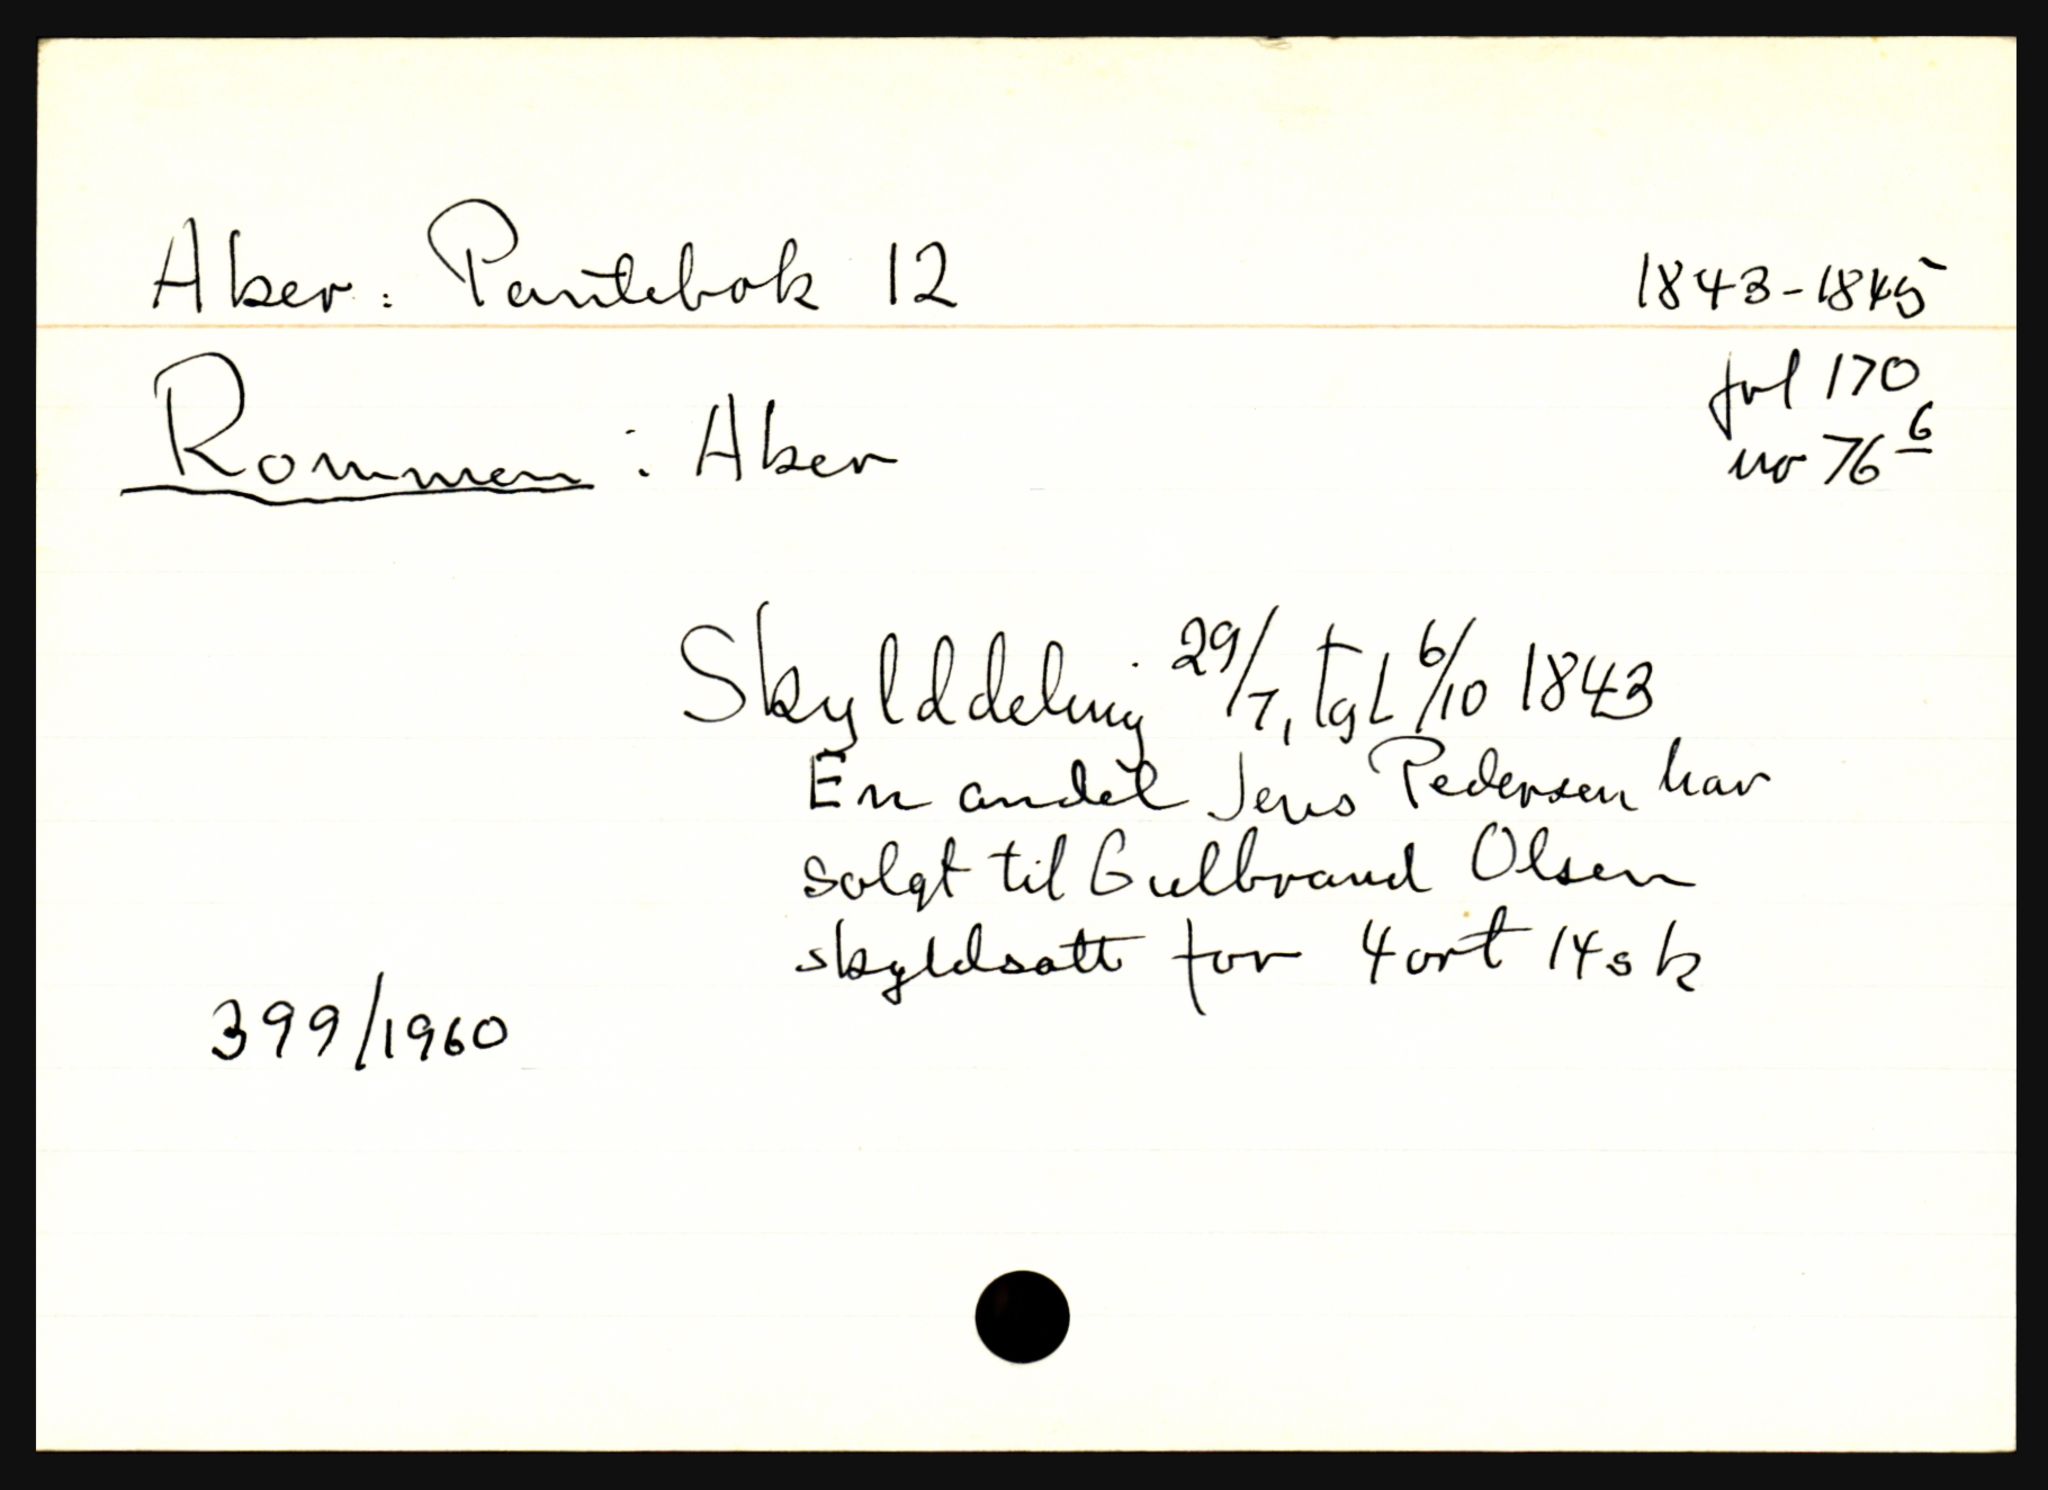 Aker: Pantebok 12 1843-1845
fol 170
Rommen : Aker
no 76 6
Skylddeling 29/7, tgl 6/10 1843
En andel Jens Pedersen har
solgt til Gulbrand Olsen
skyldsatt for 4 ort 14 sk
399/1960